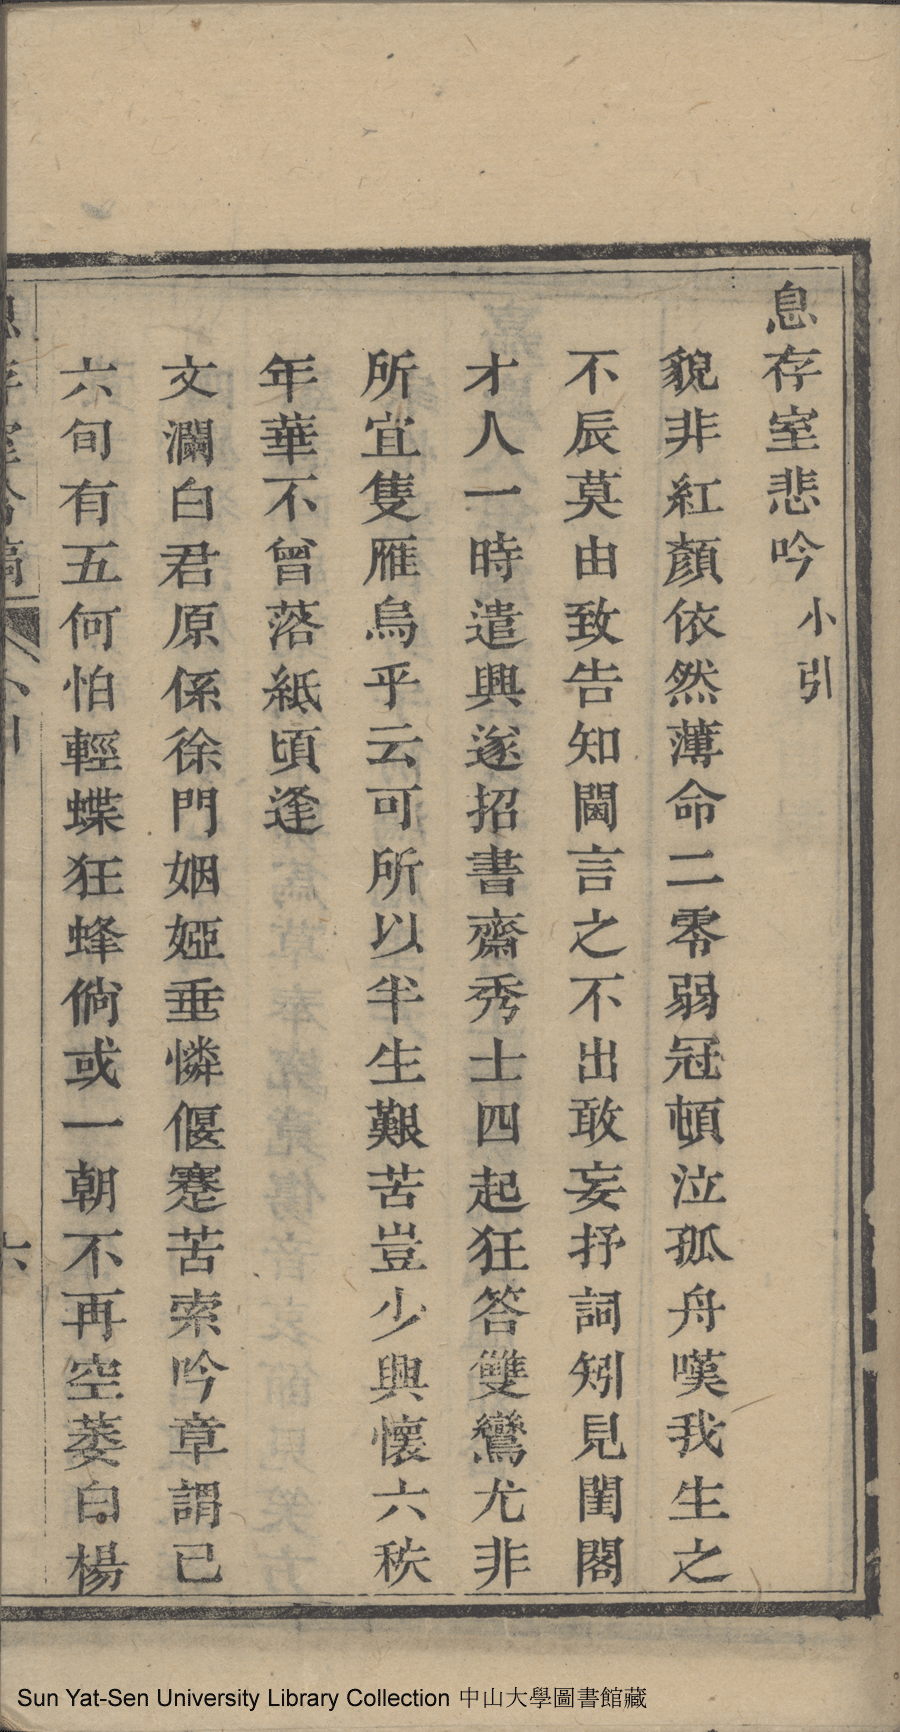 息存室悲吟 小引
貌非紅顏依然薄命二零弱冠頓泣孤舟嘆我生之
不辰莫由致告知閫言之不出敢妄抒詞矧見閨閣
才人一時遣興遂招書齋秀士四起狂答雙鸞尤非
所宜隻雁烏乎云可所以半生艱苦豈少興懷六秩
年華不曾落紙頃逢
文瀾白君原係徐門姻婭垂憐偃蹇苦索吟章謂已
六旬有五何怕輕蝶狂蜂倘或一朝不再空萎白楊
息存室吟稿 小引 六
Sun Yat-Sen University Library Collection 中山大學圖書館藏